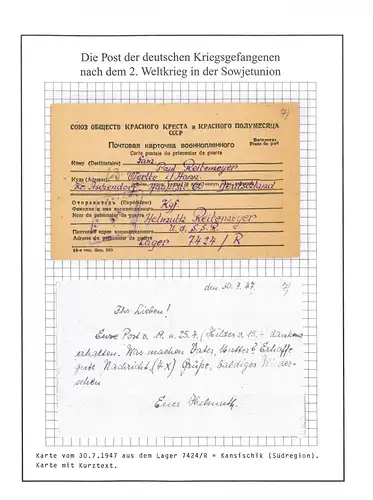 Die Post der deutschen Kriegsgefangenen
nach dem 2. Weltkrieg in der Sowjetunion
7)
СОЮЗ ОБЩЕСТВ КРАСНОГО КРЕСТА и КРАСНОГО ПОЛУМЕСЯЦА
СССР
Почтовая карточка военнопленного
Carte postale du prisonnier de guerre
Бесплатно
Franc de port
Кому (Destinataire) Fam. Paul Reitemeyer
Куда (Adresse) Werlte i/Hann.
Deutschland
Отправитель (Expéditeur) Kgf
Фамилия и имя военнопленного
Nom du prisonnier de guerre Helmuth Reitemeyer
Почтовый адрес военнопленного U.d.S.S.R.
Adresse du prisonnier de guerre Lager 7424/R
den 30.7.47. 7)
Ihr Lieben!
Eure Post v. 19. u. 25.7. / Hildes v. 15.7. dankend
erhalten. Was machen Vater, Mutter? Erhoffe
gute Nachricht (4x) Grüße, baldiges Wieder-
sehen
Euer Helmuth.
Karte vom 30.7.1947 aus dem Lager 7424/R = Kansischik (Südregion).
Karte mit Kurztext.